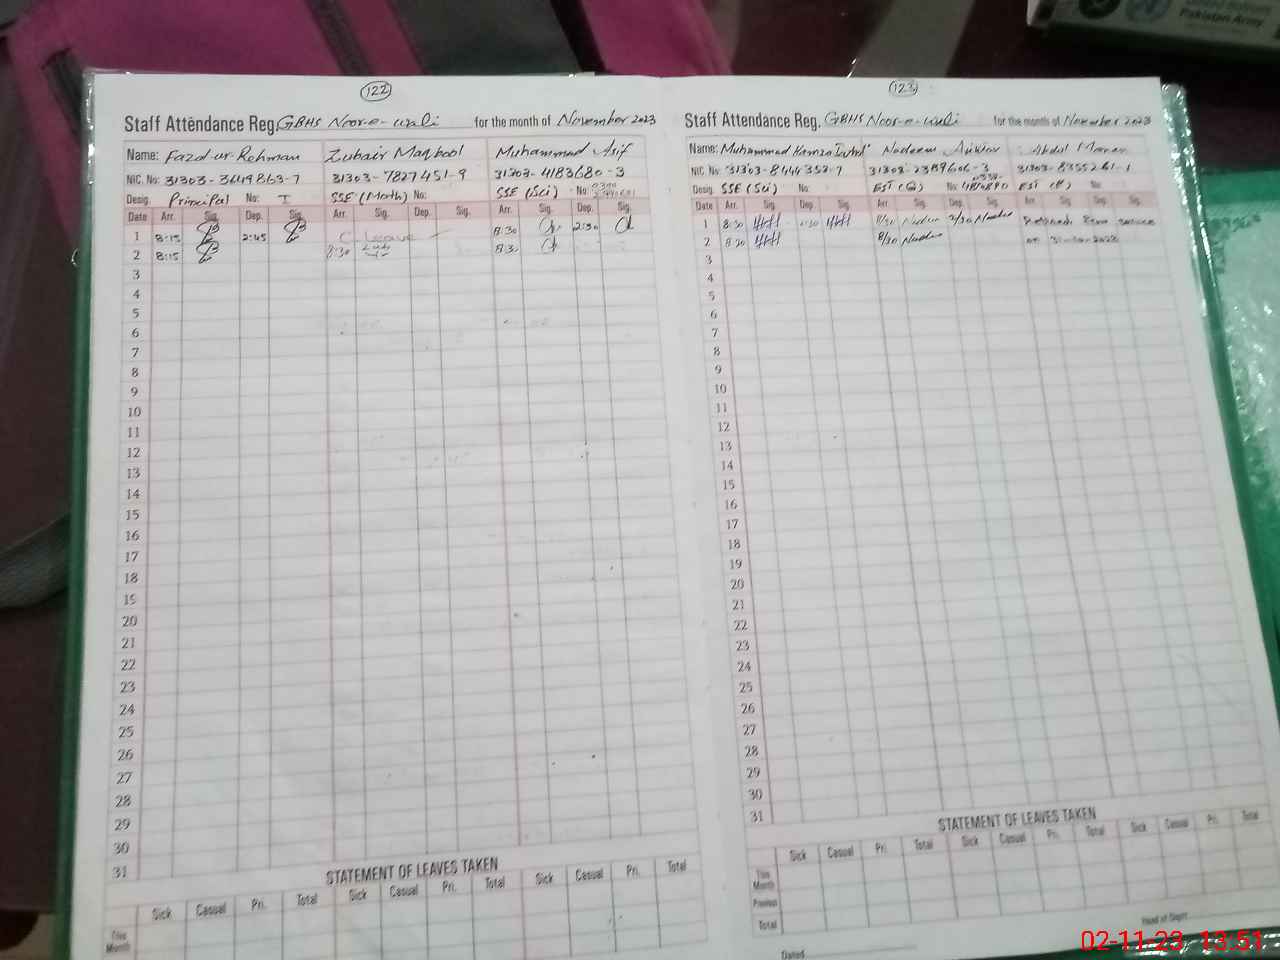 Pakistan Army
122
Staff Attendance Reg. GBHS Noor-e-wali for the month of November 2023
Name: Fazal-ur-Rehman Zubair Maqbool Muhammad Asif
NIC. No: 31303-3649863-7 31303-7827451-9 31303-4183680-3
Desig. Principal No: I SSE (Math) No: SSE (Sci) No:
Date Arr. Sig. Dep. Sig. Arr. Sig. Dep. Sig. Arr. Sig. Dep. Sig.
1 8:15 2:45 C Leave 8:30 2:30
2 8:15 8:30 Zub 8:30
3
4
5
6
7
8
9
10
11
12
13
14
15
16
17
18
19
20
21
22
23
24
25
26
27
28
29
30
31
STATEMENT OF LEAVES TAKEN
Sick Casual Pri. Total Sick Casual Pri. Total Sick Casual Pri. Total
This Month
123
Staff Attendance Reg. GBHS Noor-e-wali for the month of November 2023
Name: Muhammad Hamza Nadeem Abdul Manan
NIC. No: 31303-8444352-7 31303-2389606-3 31303-8355261-1
Desig. SSE (Sci) No: EST No: EST (P) No:
Date Arr. Sig. Dep. Sig. Arr. Sig. Dep. Sig. Arr. Sig. Dep. Sig.
1 8:30 2:30 8/30 Nadeem 2/30 Nadeem Retired from service
2 8:30 8/30 Nadeem on 31-10-2023
3
4
5
6
7
8
9
10
11
12
13
14
15
16
17
18
19
20
21
22
23
24
25
26
27
28
29
30
31
STATEMENT OF LEAVES TAKEN
Sick Casual Pri. Total Sick Casual Pri. Total Sick Casual Pri. Total
This Month
Previous
Total
Dated
Head of Deptt
02-11-23 13:51